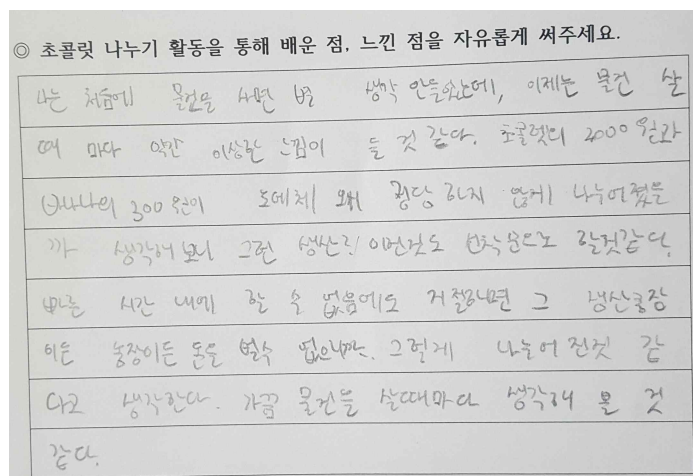 ◎ 초콜릿 나누기 활동을 통해 배운 점, 느낀 점을 자유롭게 써주세요.
나는 처음에 물건을 사면 별 생각 안들었는데, 이제는 물건 살
때 마다 약간 이상한 느낌이 들 것 같다. 초콜렛의 2000원과
바나나의 300원이 도데체 왜 정당하지 않게 나누어졌을
까 생각해 보니 그런 생산 이런것도 할것같다.
빠른 시간 내에 할 수 없음에도 거절하면 그 생산공장
이든 농장이든 돈을 벌수 없으니까. 그렇게 나누어 진것 같
다고 생각한다. 가끔 물건들 살때마다 생각해 볼 것
같다.